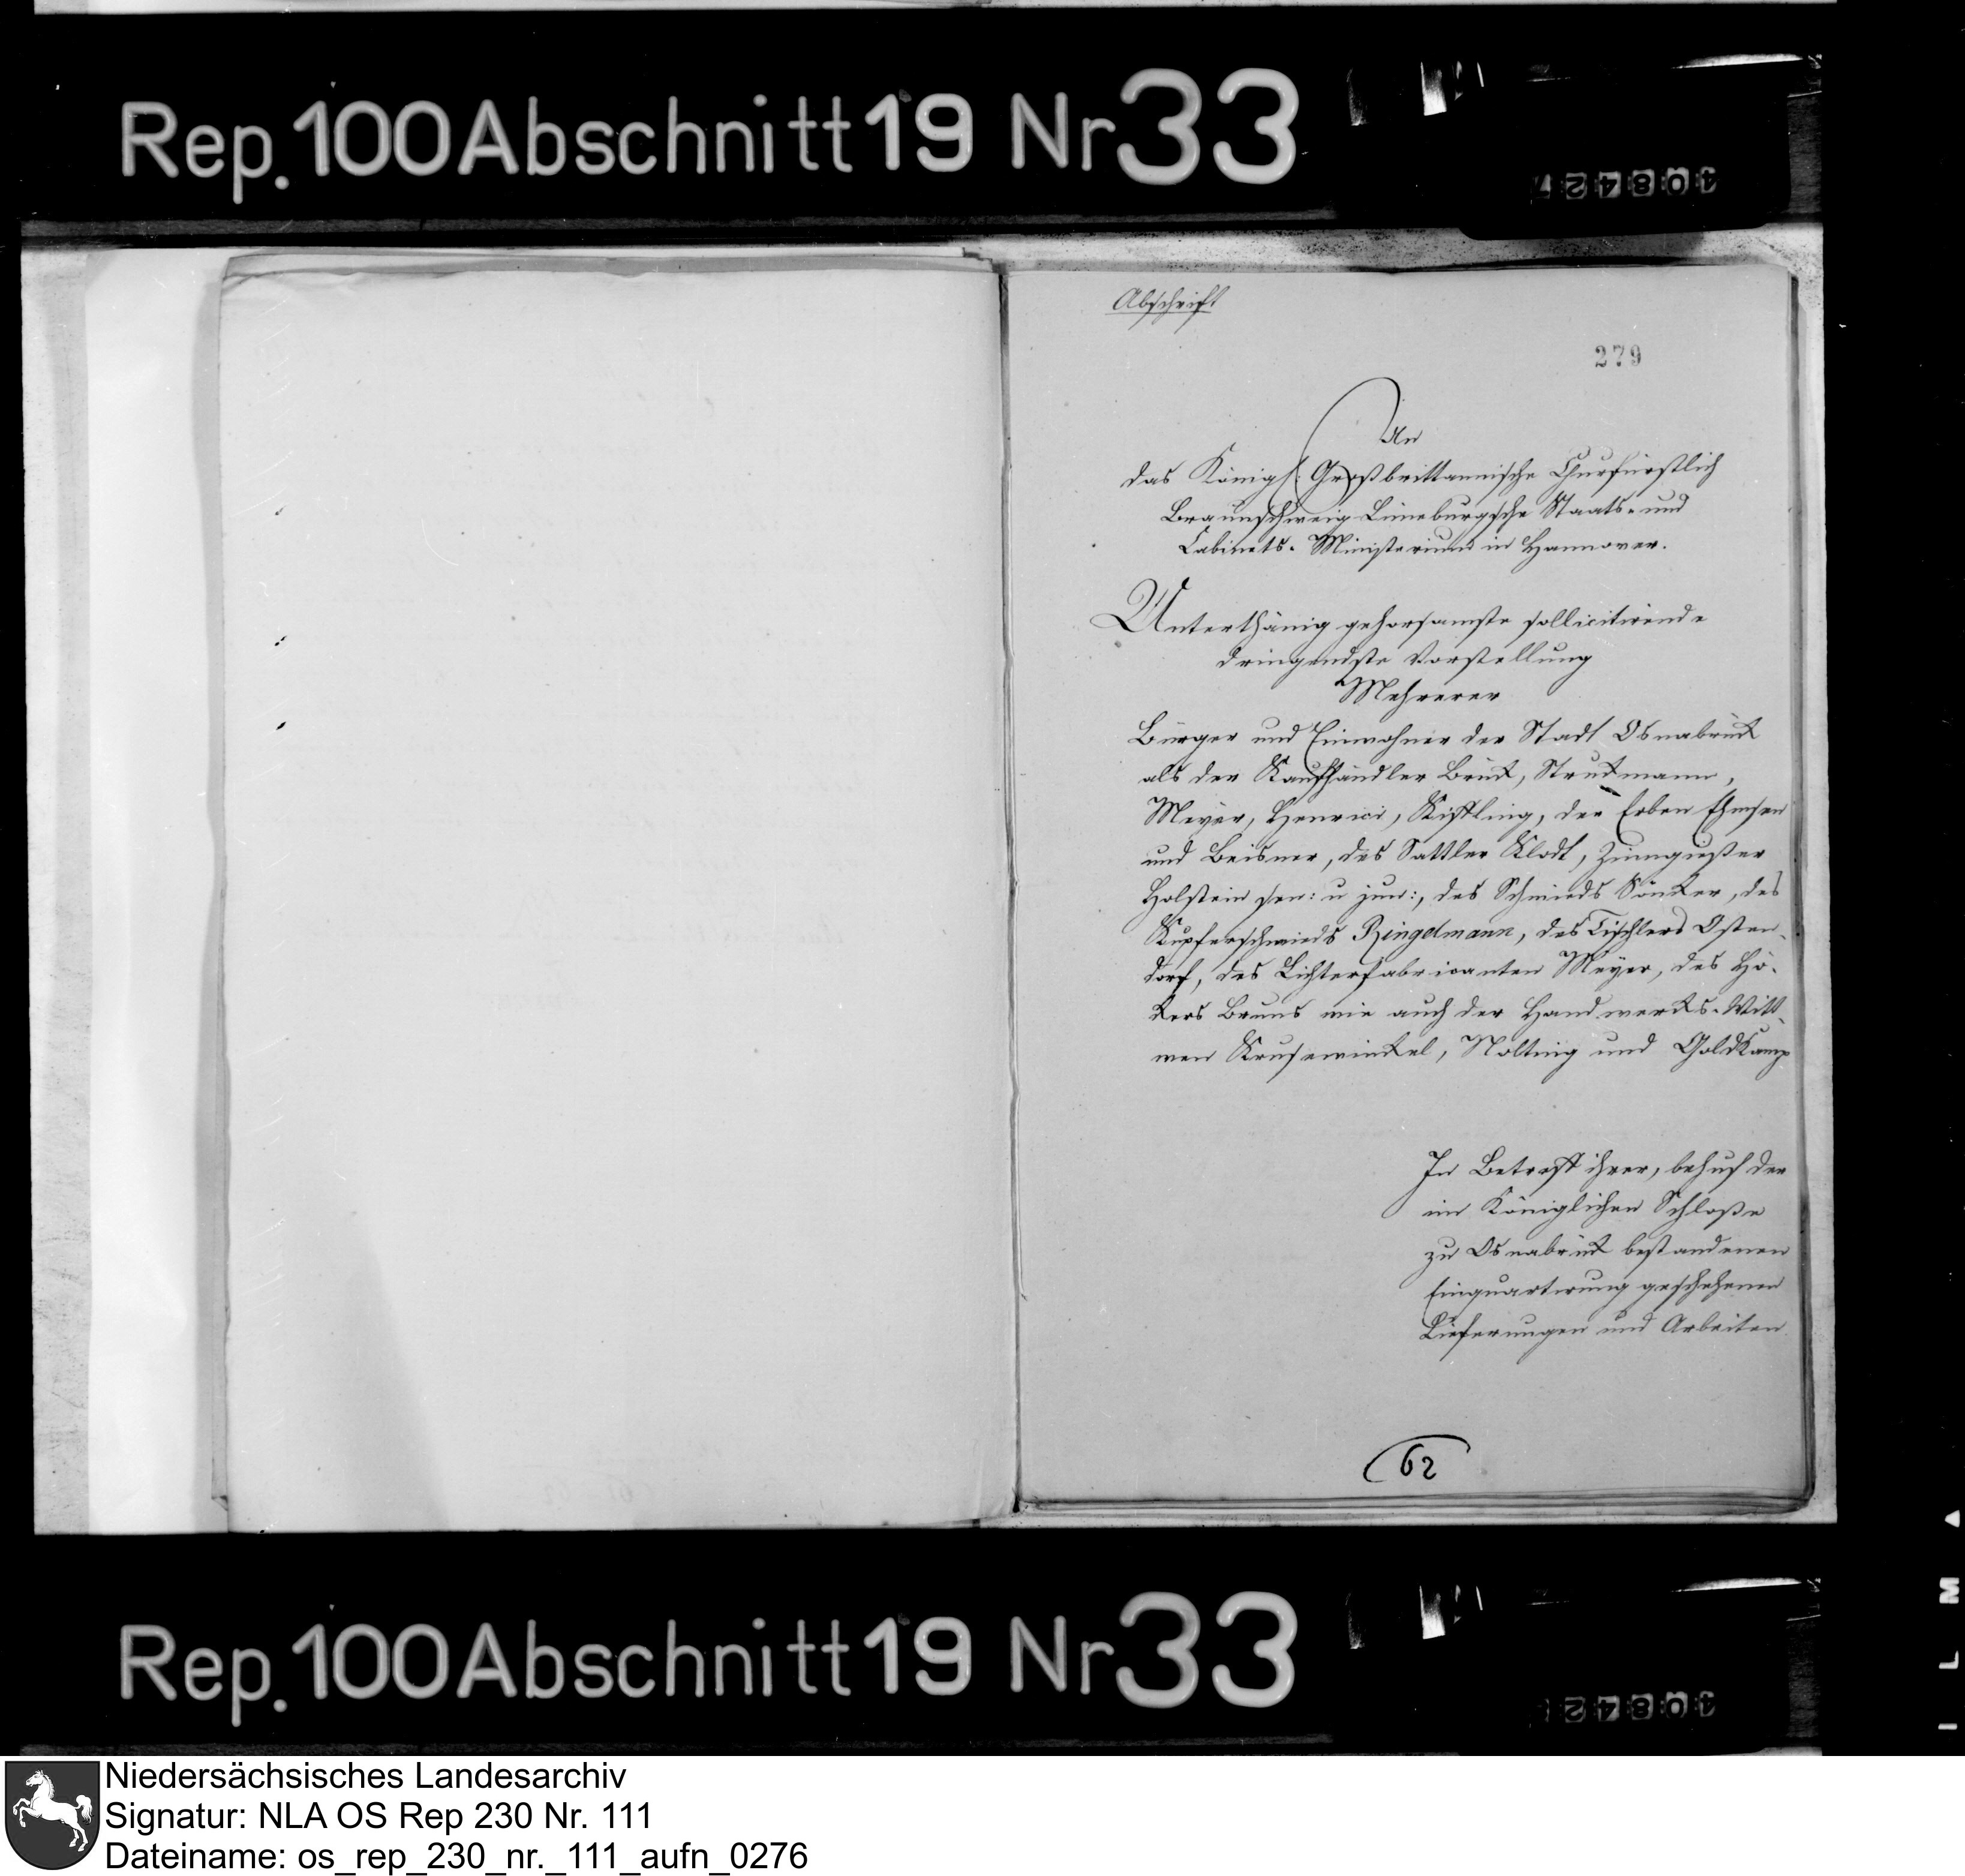 Rep. 100 Abschnitt 19 Nr 33
Abschrift
279
An
das Königl: Großbrittannische Churfürstlich
Braunschweig Lüneburgsche Staats- und
Cabinets- Ministerium in Hannover.
Unterthänig gehorsamste sollicitirende
dringendste Vorstellung
Mehrerer
Bürger und Einwohner der Stadt Osnabrück
als der Kaufhändler Brück, Struckmann,
Meyer, Henrici, Kistling, der Erben Ehmsen
und Beisner, des Sattler Klodt, Zinngießer
Holstein sen: u jun:, des Schmieds Söncker, des
Kupferschmieds Ringelmann, des Tischlers Osten-
dorf, des Lichterfabricanten Meyer, des Hö-
ckers Bruns wie auch der Handwercks-Witt-
wen Krusewinckel, Nolting und Goldkamp
In Betreff ihrer, behuf der
im Königlichen Schloße
zu Osnabrück bestandenen
Einquartirung geschehenen
Lieferungen und Arbeiten
62
Rep. 100 Abschnitt 19 Nr 33
Niedersächsisches Landesarchiv
Signatur: NLA OS Rep 230 Nr. 111
Dateiname: os_rep_230_nr._111_aufn_0276